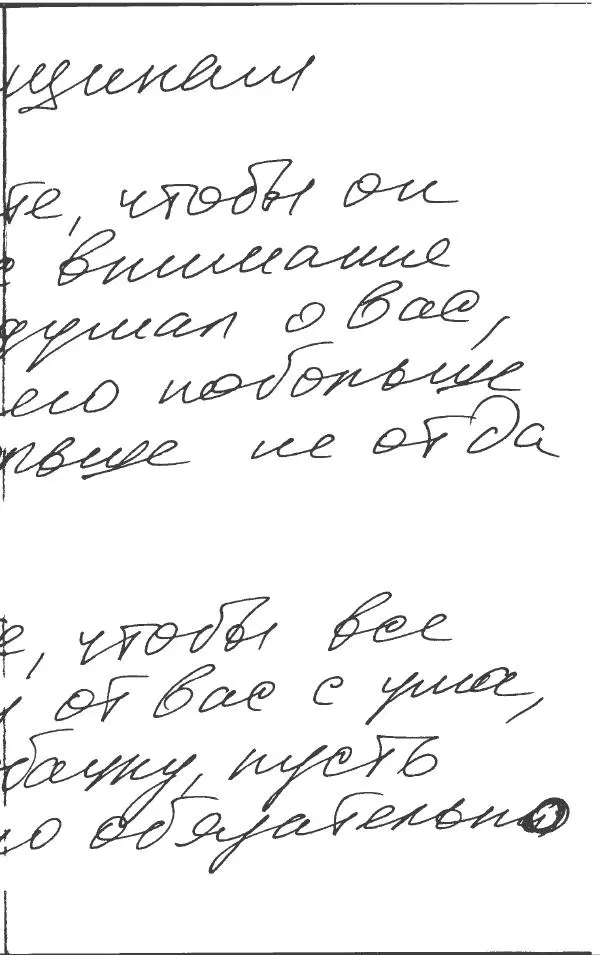 нщинам
те, чтобы он
е внимание
думал о вас,
его побольше
льше не отда
е, чтобы все
от вас с ума,
бачку, пусть
о обязательно